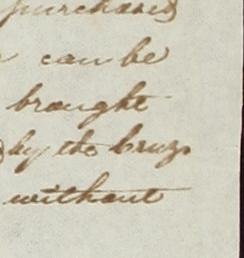 purchased
can be
brought
by the
without